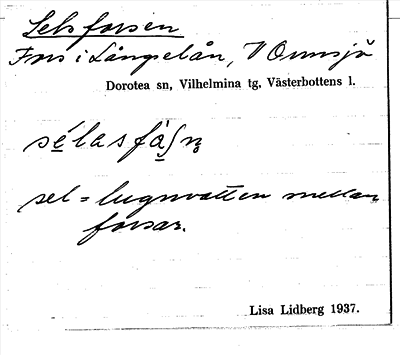 Selsforsen
Fors i Långselån, V Ormsjö
Dorotea sn, Vilhelmina tg, Västerbottens l.
sel = lugnvatten mellan
forsar.
Lisa Lidberg 1937.